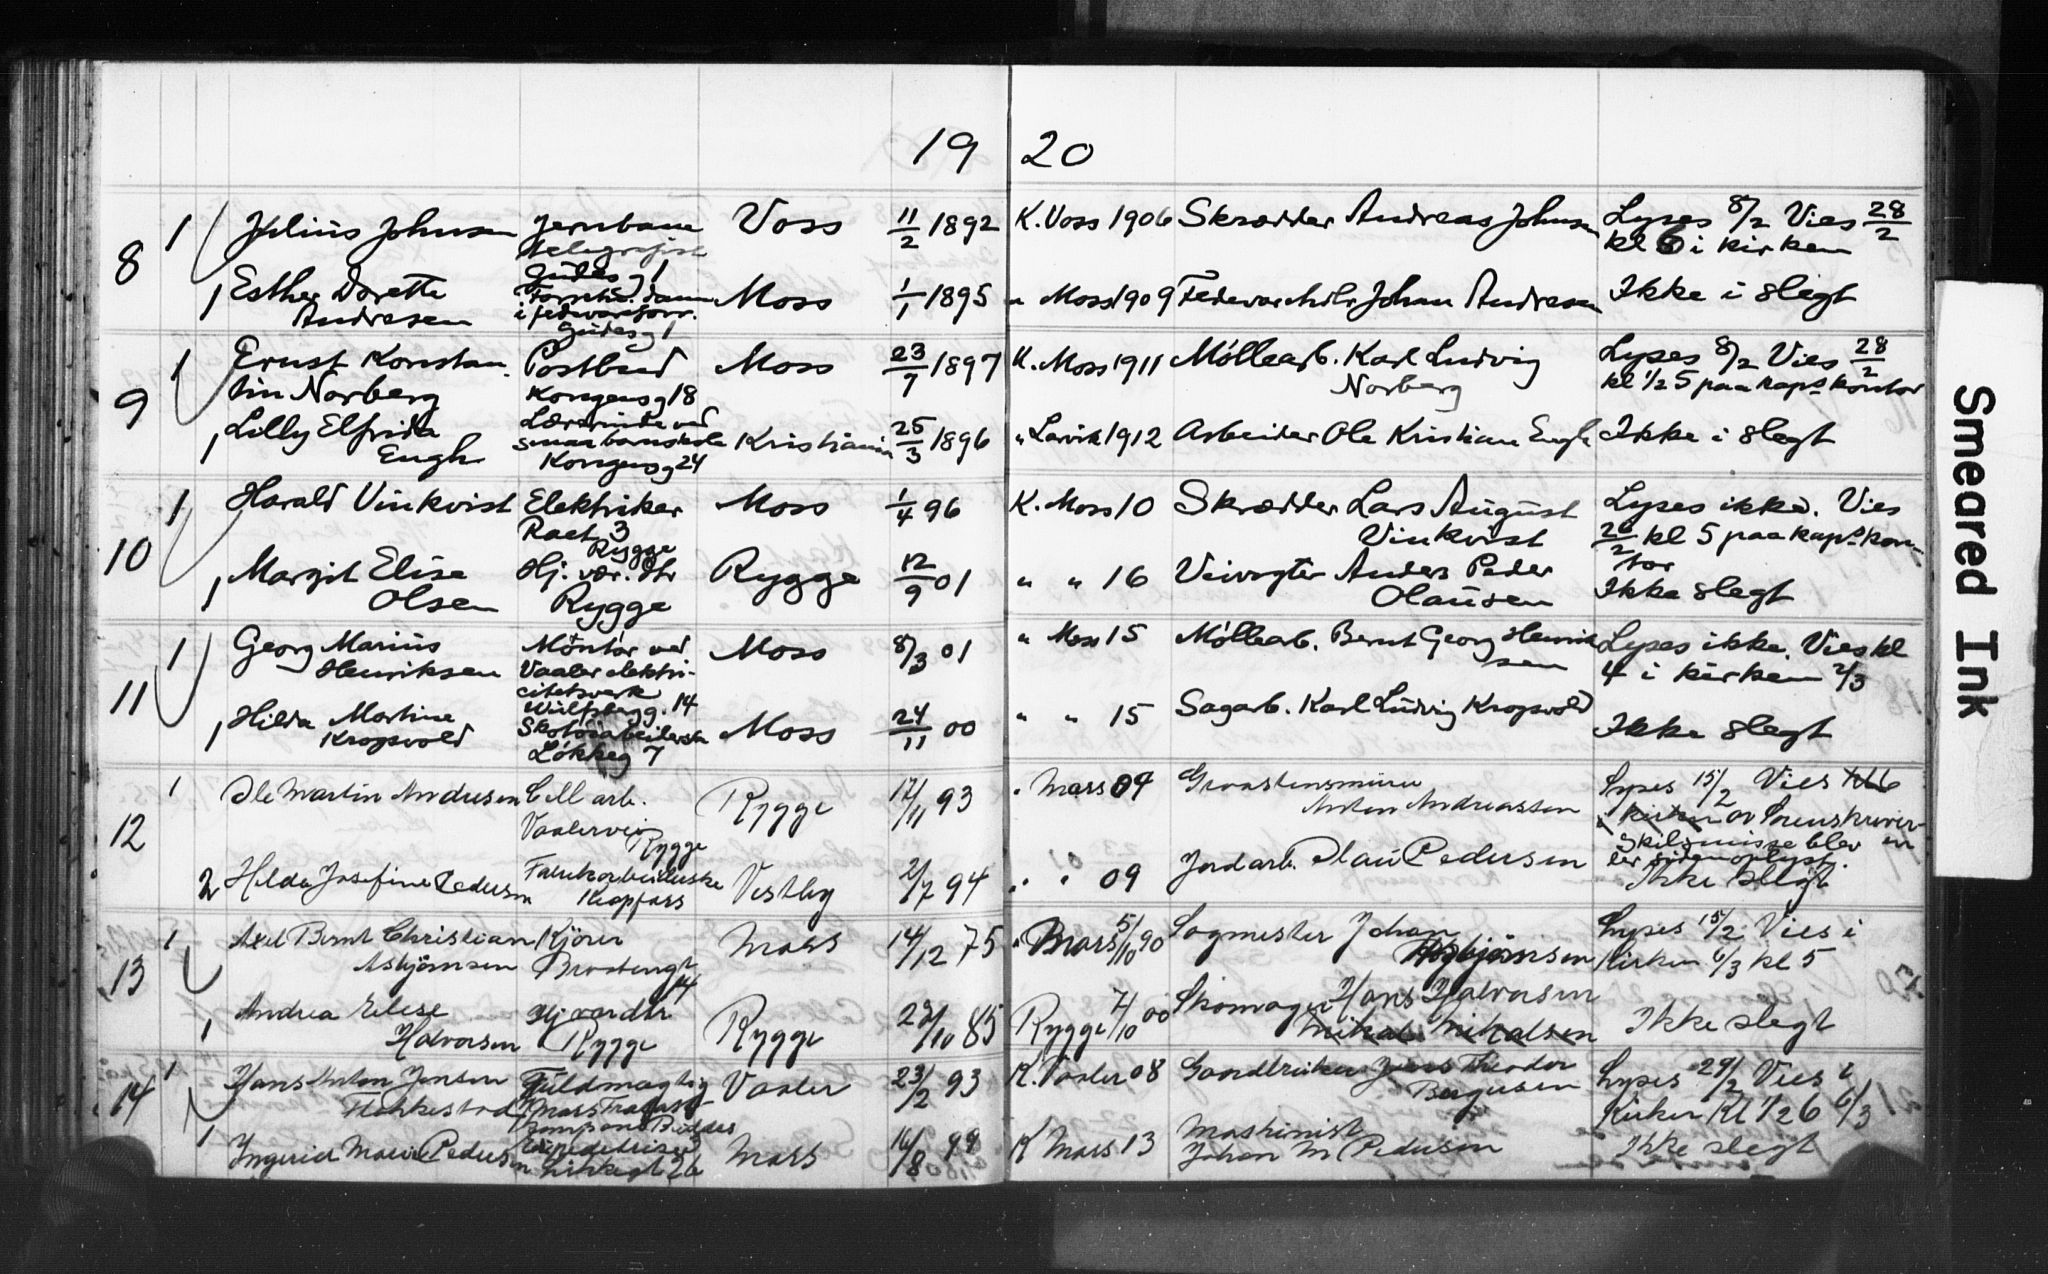 19 20
8 1 Julius Johnsen Jernbane Voss 11/2 1892 K. Voss 1906 Skrædder Andreas Johnsen Lyses 8/2 Vies 28/2
telegrafist kl 6 i kirken
Gudesg 1
1 Esther Dorette Moss 1/1 1895 " Moss 1909 Fedevarehdlr Johan Andresen Ikke i slegt
Andresen i fedevareforr.
Gudesg 1
9 1 Ernst Konstan- Postbud Moss 23/7 1897 K. Moss 1911 Møllearb. Karl Ludvig Lyses 8/2 Vies 28/2
tin Norberg Kongensg 18 Norberg kl 1/2 5 paa kaps kontor
1 Lilly Elfrida Lærerinde ved Kristiania 25/3 1896 " Larvik 1912 Arbeider Ole Kristian Engh Ikke i slegt
Engh smaabarnskole
Kongensg 24
10 1 Harald Vinkvist Elektriker Moss 1/4 96 K. Moss 10 Skrædder Lars August Lyses ikke. Vies
Raet 3 Vinkvist 26/2 kl 5 paa kaps kon-
Rygge tor
1 Margit Elise Hj. vær. dtr Rygge 12/9 01 " " 16 Veivogter Anders Peder Ikke slegt
Olsen Rygge Olausen
11 1 Georg Marius Montør ved Moss 8/3 01 " Moss 15 Møllearb. Bernt Georg Henrik Lyses ikke. Vies kl
Henriksen Vaaler elektri- sen 4 i kirken 2/3
citetsverk
Wulfsbgg. 14
1 Hilda Martine Skotøiarbeiderske Moss 24/11 00 " " 15 Sagarb. Karl Ludvig Kropsvold Ikke slegt
Kropsvold Løkkeg 7
12 1 Ole Martin Andersen Cell arb. Rygge 17/11 93 " Moss 04 Graastensmurer Lyses 15/2 Vies
Vaalervei Anton Andreassen kirken av Sorenskriver-
Rygge en
Skilsmisse blev
2 Hilda Josefine Pedersen Fabrikarbeiderske Vestby 2/7 94 " " 09 Jordarb. Olau Pedersen
Krapfoss Ikke slegt
13 1 Axel Bernt Christian Kjører Moss 14/12 75 " Moss 5/10 90 Sagmester Johan Lyses 15/2. Vies i
Asbjörnsen 14 Asbjörnsen Kirken 6/3 kl 5
1 Andrea Elise Hj vær dtr Rygge 23/10 85 Rygge 7/10 00 Skomager Hans Halvorsen Ikke slegt
Halvorsen Rygge Mikal Mikalsen
14 1 Hans Anton Jensen Fuldmægtig Vaaler 23/2 93 K. Vaaler 08 Gaardbruker Jens Theodor Lyses 29/2 Vies i
Flakkestad Moss Bergersen Kirken Kl 1/2 6 6/3
1 Ingerid Marie Pedersen Expeditrise Moss 16/8 99 K Moss 13 Maskinist Ikke slegt
Kirkegt 26 Johan M Pedersen
Smeared Ink